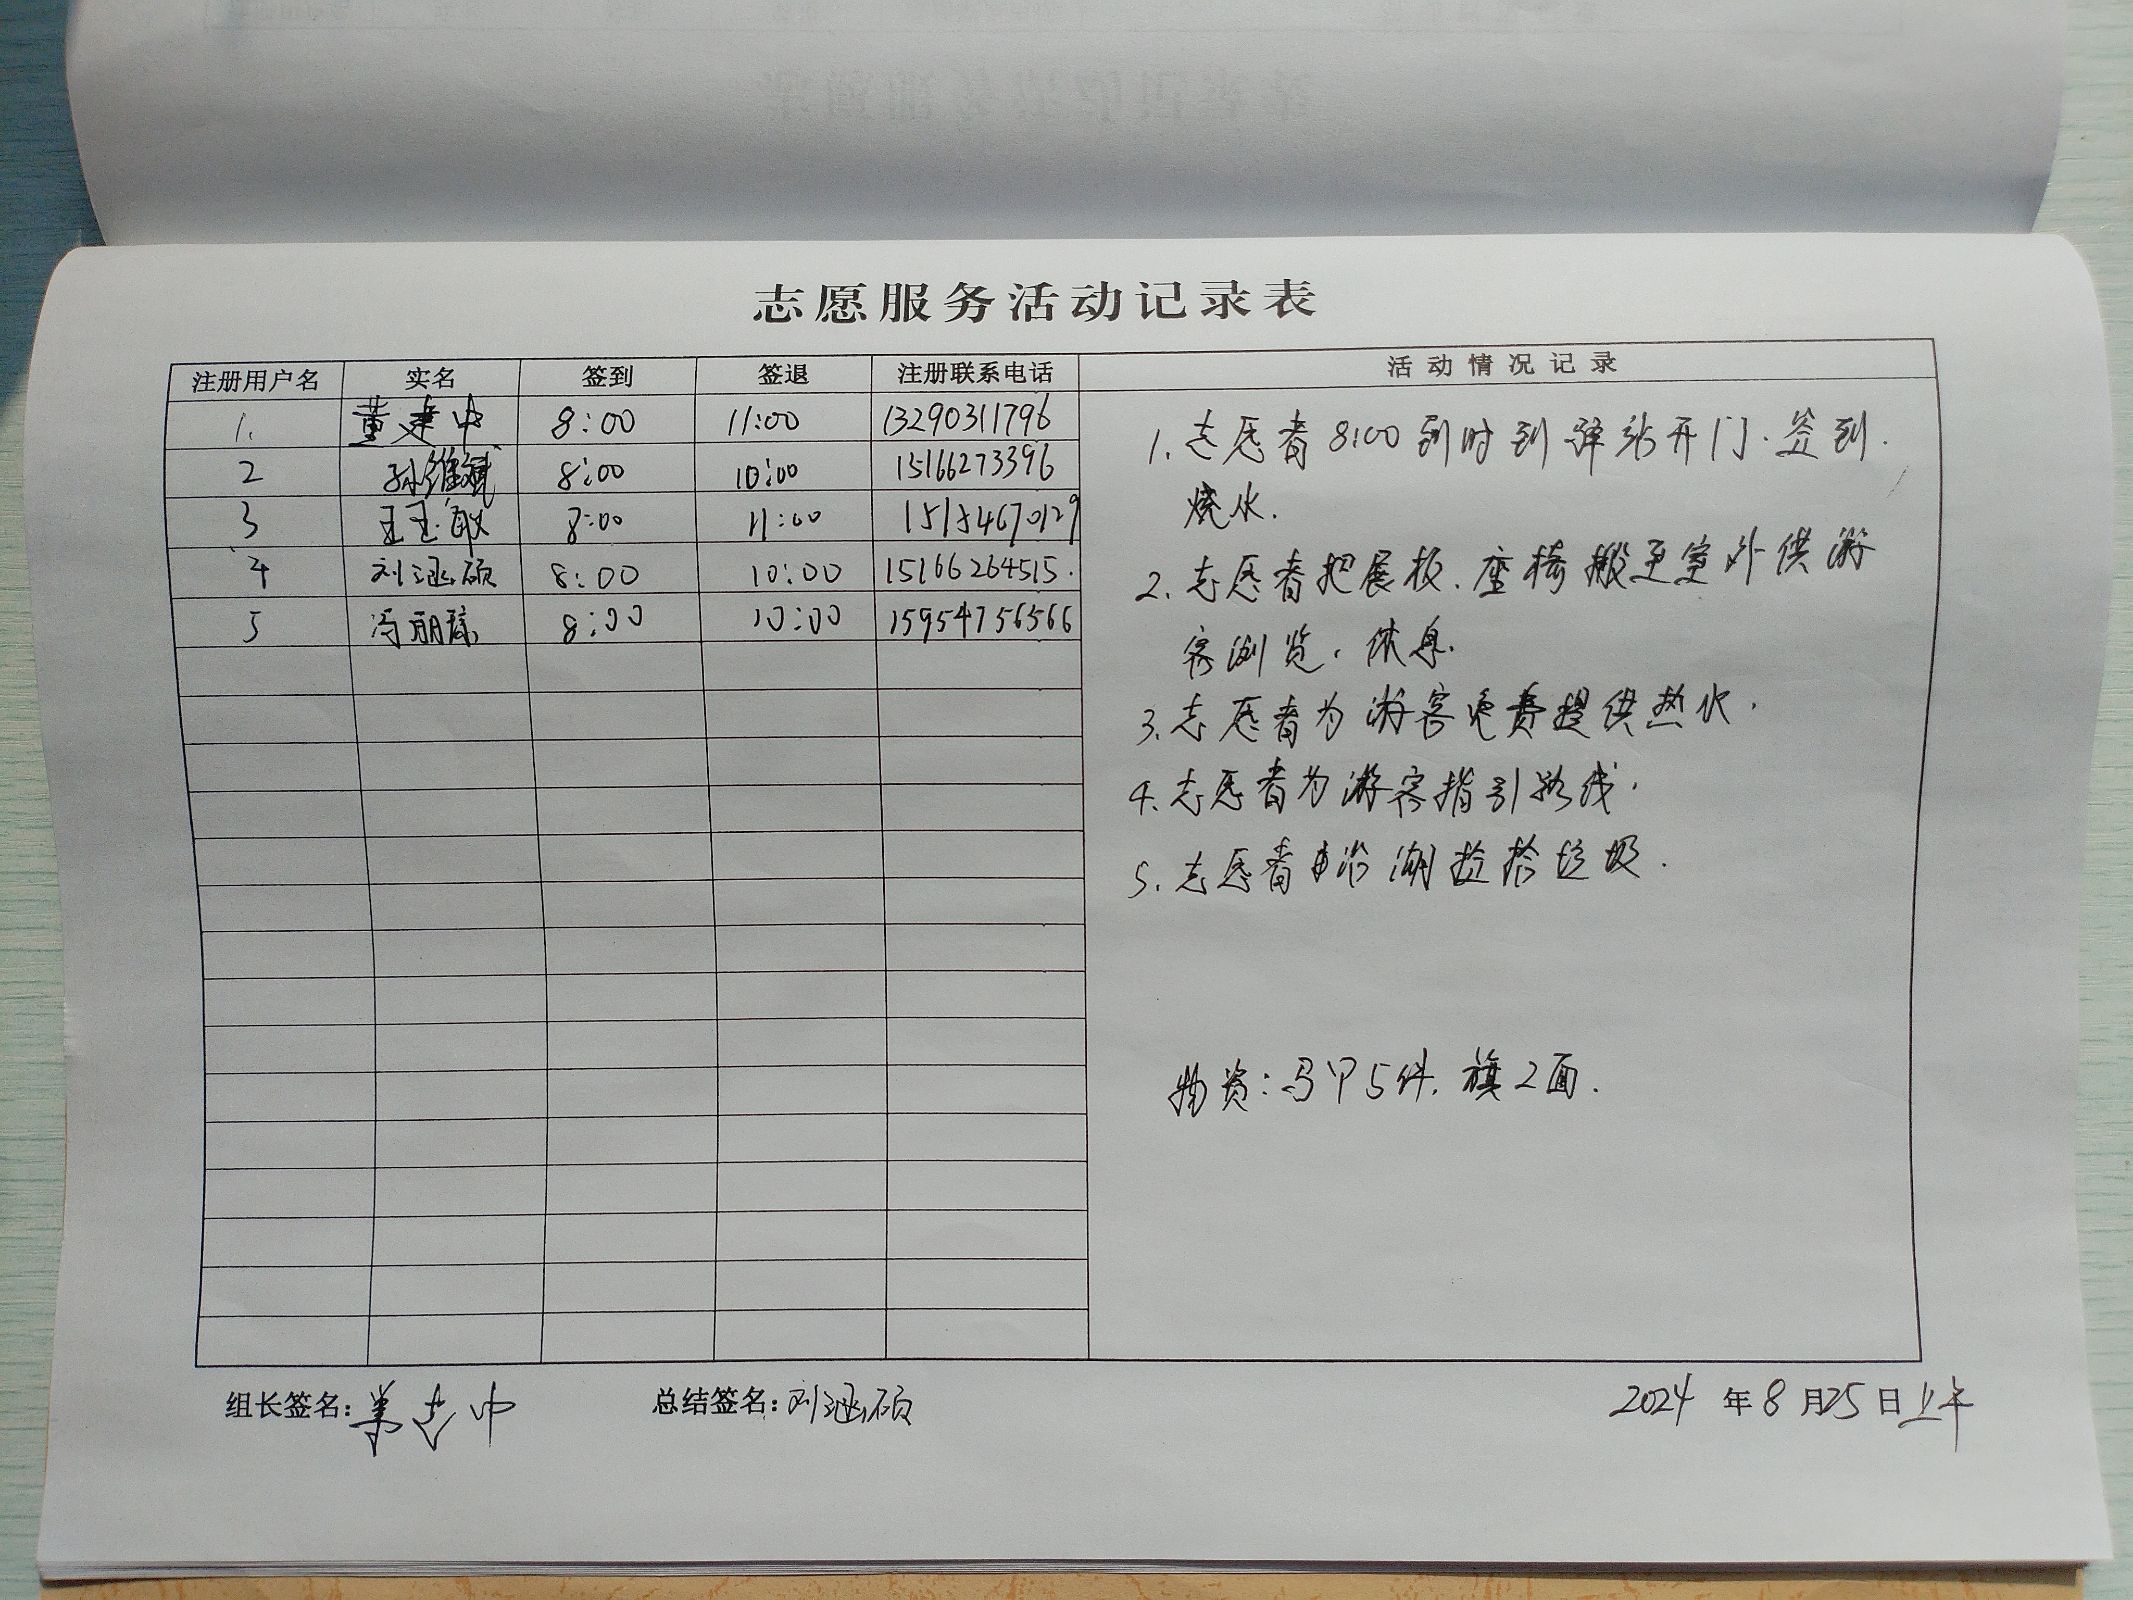 志愿服务活动记录表
注册用户名 实名 签到 签退 注册联系电话 活动情况记录
1. 董建中 8:00 11:00 13290311796
2 孙维斌 8:00 10:00 15166273396
3 王玉敏 8:00 11:00 15154670129
4 刘涵硕 8:00 10:00 15166264515.
5 冯丽 8:00 10:00 15954756566
1. 志愿者8:00到时到驿站开门.签到.
烧水.
2. 志愿者把展板.座椅搬至室外供游
客浏览.休息.
3. 志愿者为游客免费提供热水.
4. 志愿者为游客指引路线.
5. 志愿者沿湖捡拾垃圾.
物资:马甲5件.旗2面.
组长签名: 董建中 总结签名: 刘涵硕 2024年8月25日上午